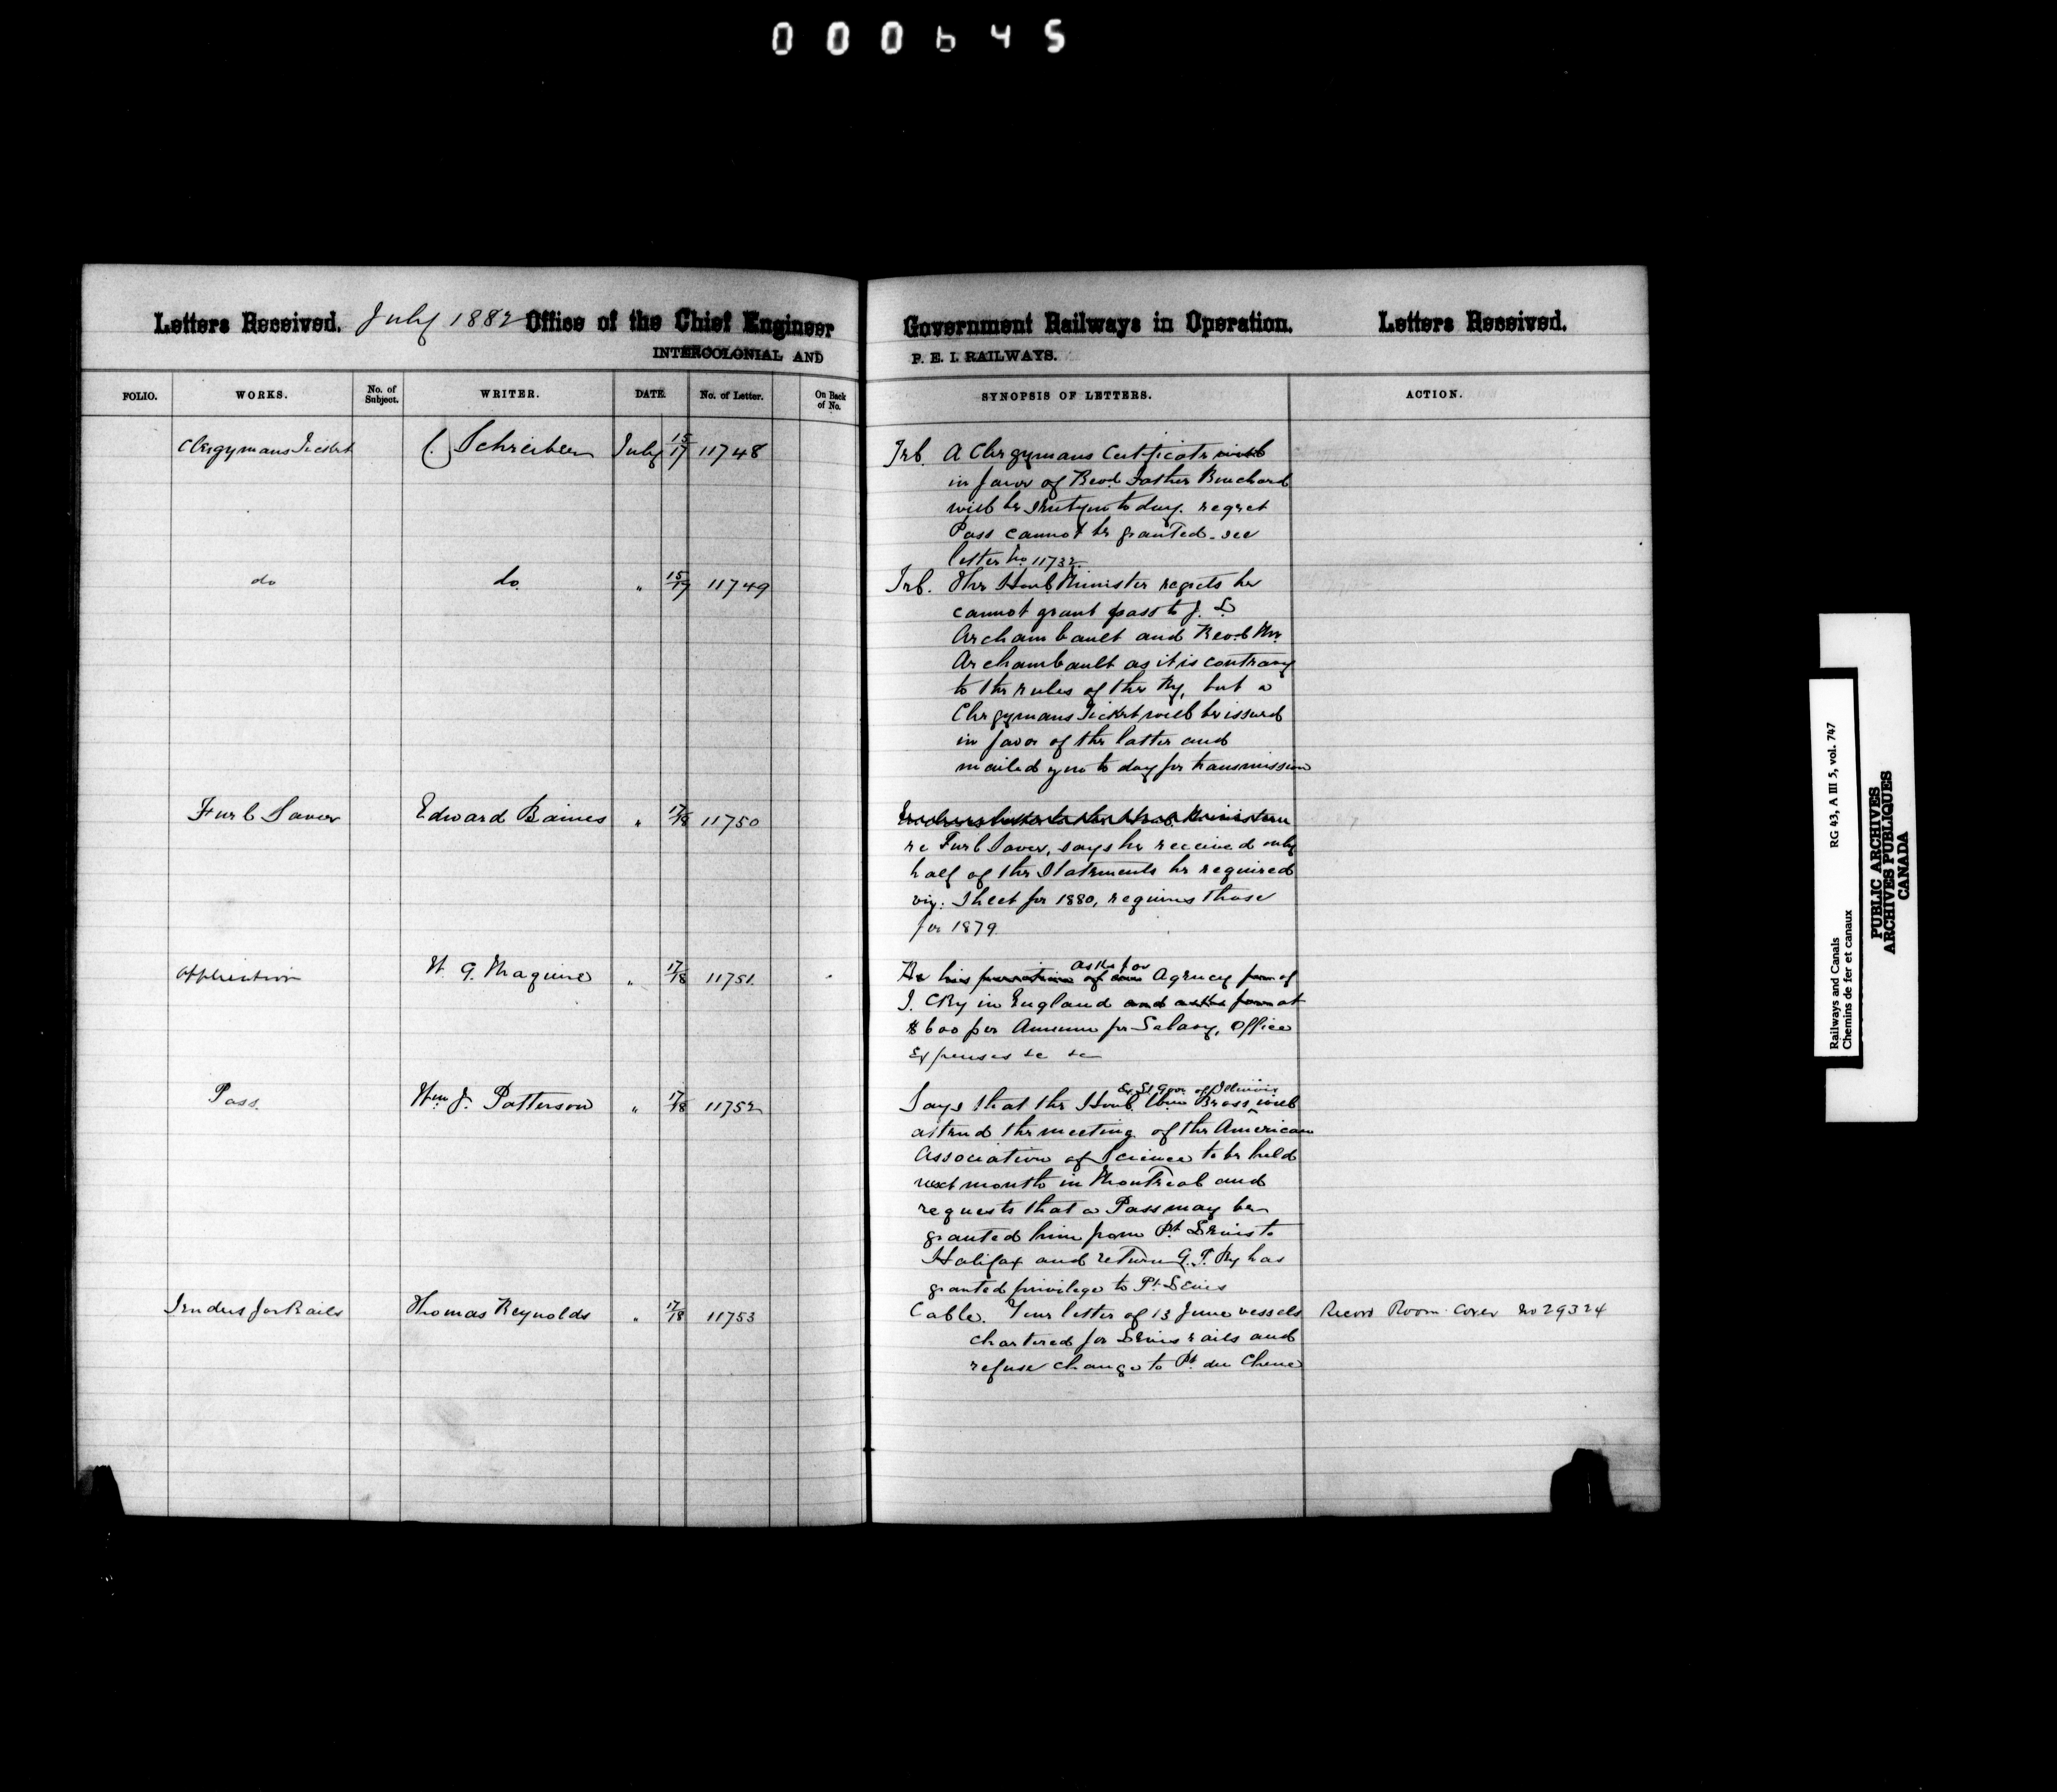 000645
Letters Received. July 1882 Office of the Chief Engineer
INTERCOLONIAL AND
Government Railways in Operation. Letters Received.
P. E. I. RAILWAYS.
FOLIO. WORKS. No. of Subject. WRITER. DATE. No. of Letter. On Back of No. SYNOPSIS OF LETTERS. ACTION.
Clergymans Ticket C. Schreiber July 15/17 11748
Tel. A Clergymans Certificate will
in favor of Revd. Father Bouchard
will be sent you to day. regret
Pass cannot be granted. see
letter No. 11732
do do " 15/17 11749
Tel. The Honl. Minister regrets he
cannot grant pass to J. L.
Archambault and Revd. Mr.
Archambault as it is contrary
to the rules of the Ry, but a
Clergymans Ticket will be issued
in favor of the latter and
mailed you to day for transmission
Fuel Saver Edward Baines " 17/18 11750
re Fuel Saver, says he received only
half of the Statements he required
viz: Sheet for 1880, requires those
for 1879
Application W. G. Maguire " 17/18 11751
asks for
Agency of
I. C Ry in England and asks at
$600 per Annum for Salary, Office
Expenses &c &c
Pass. Wm. J. Patterson " 17/18 11752
Ex Lt. Gov. of Illinois
Says that the Honl. Wm Bross, will
attend the meeting of the American
Association of Science to be held
next month in Montreal and
requests that a Pass may be
granted him from Pt. Levis to
Halifax and return G. T. Ry has
granted privilege to Pt. Levis
Tenders for Rails Thomas Reynolds " 17/18 11753
Cable. Your letter of 13 June vessels Record Room Cover No 29324
chartered for Levis rails and
refuse change to Pt. du Chene
Railways and Canals RG 43, A III 5, vol. 747
Chemins de fer et canaux
PUBLIC ARCHIVES
ARCHIVES PUBLIQUES
CANADA